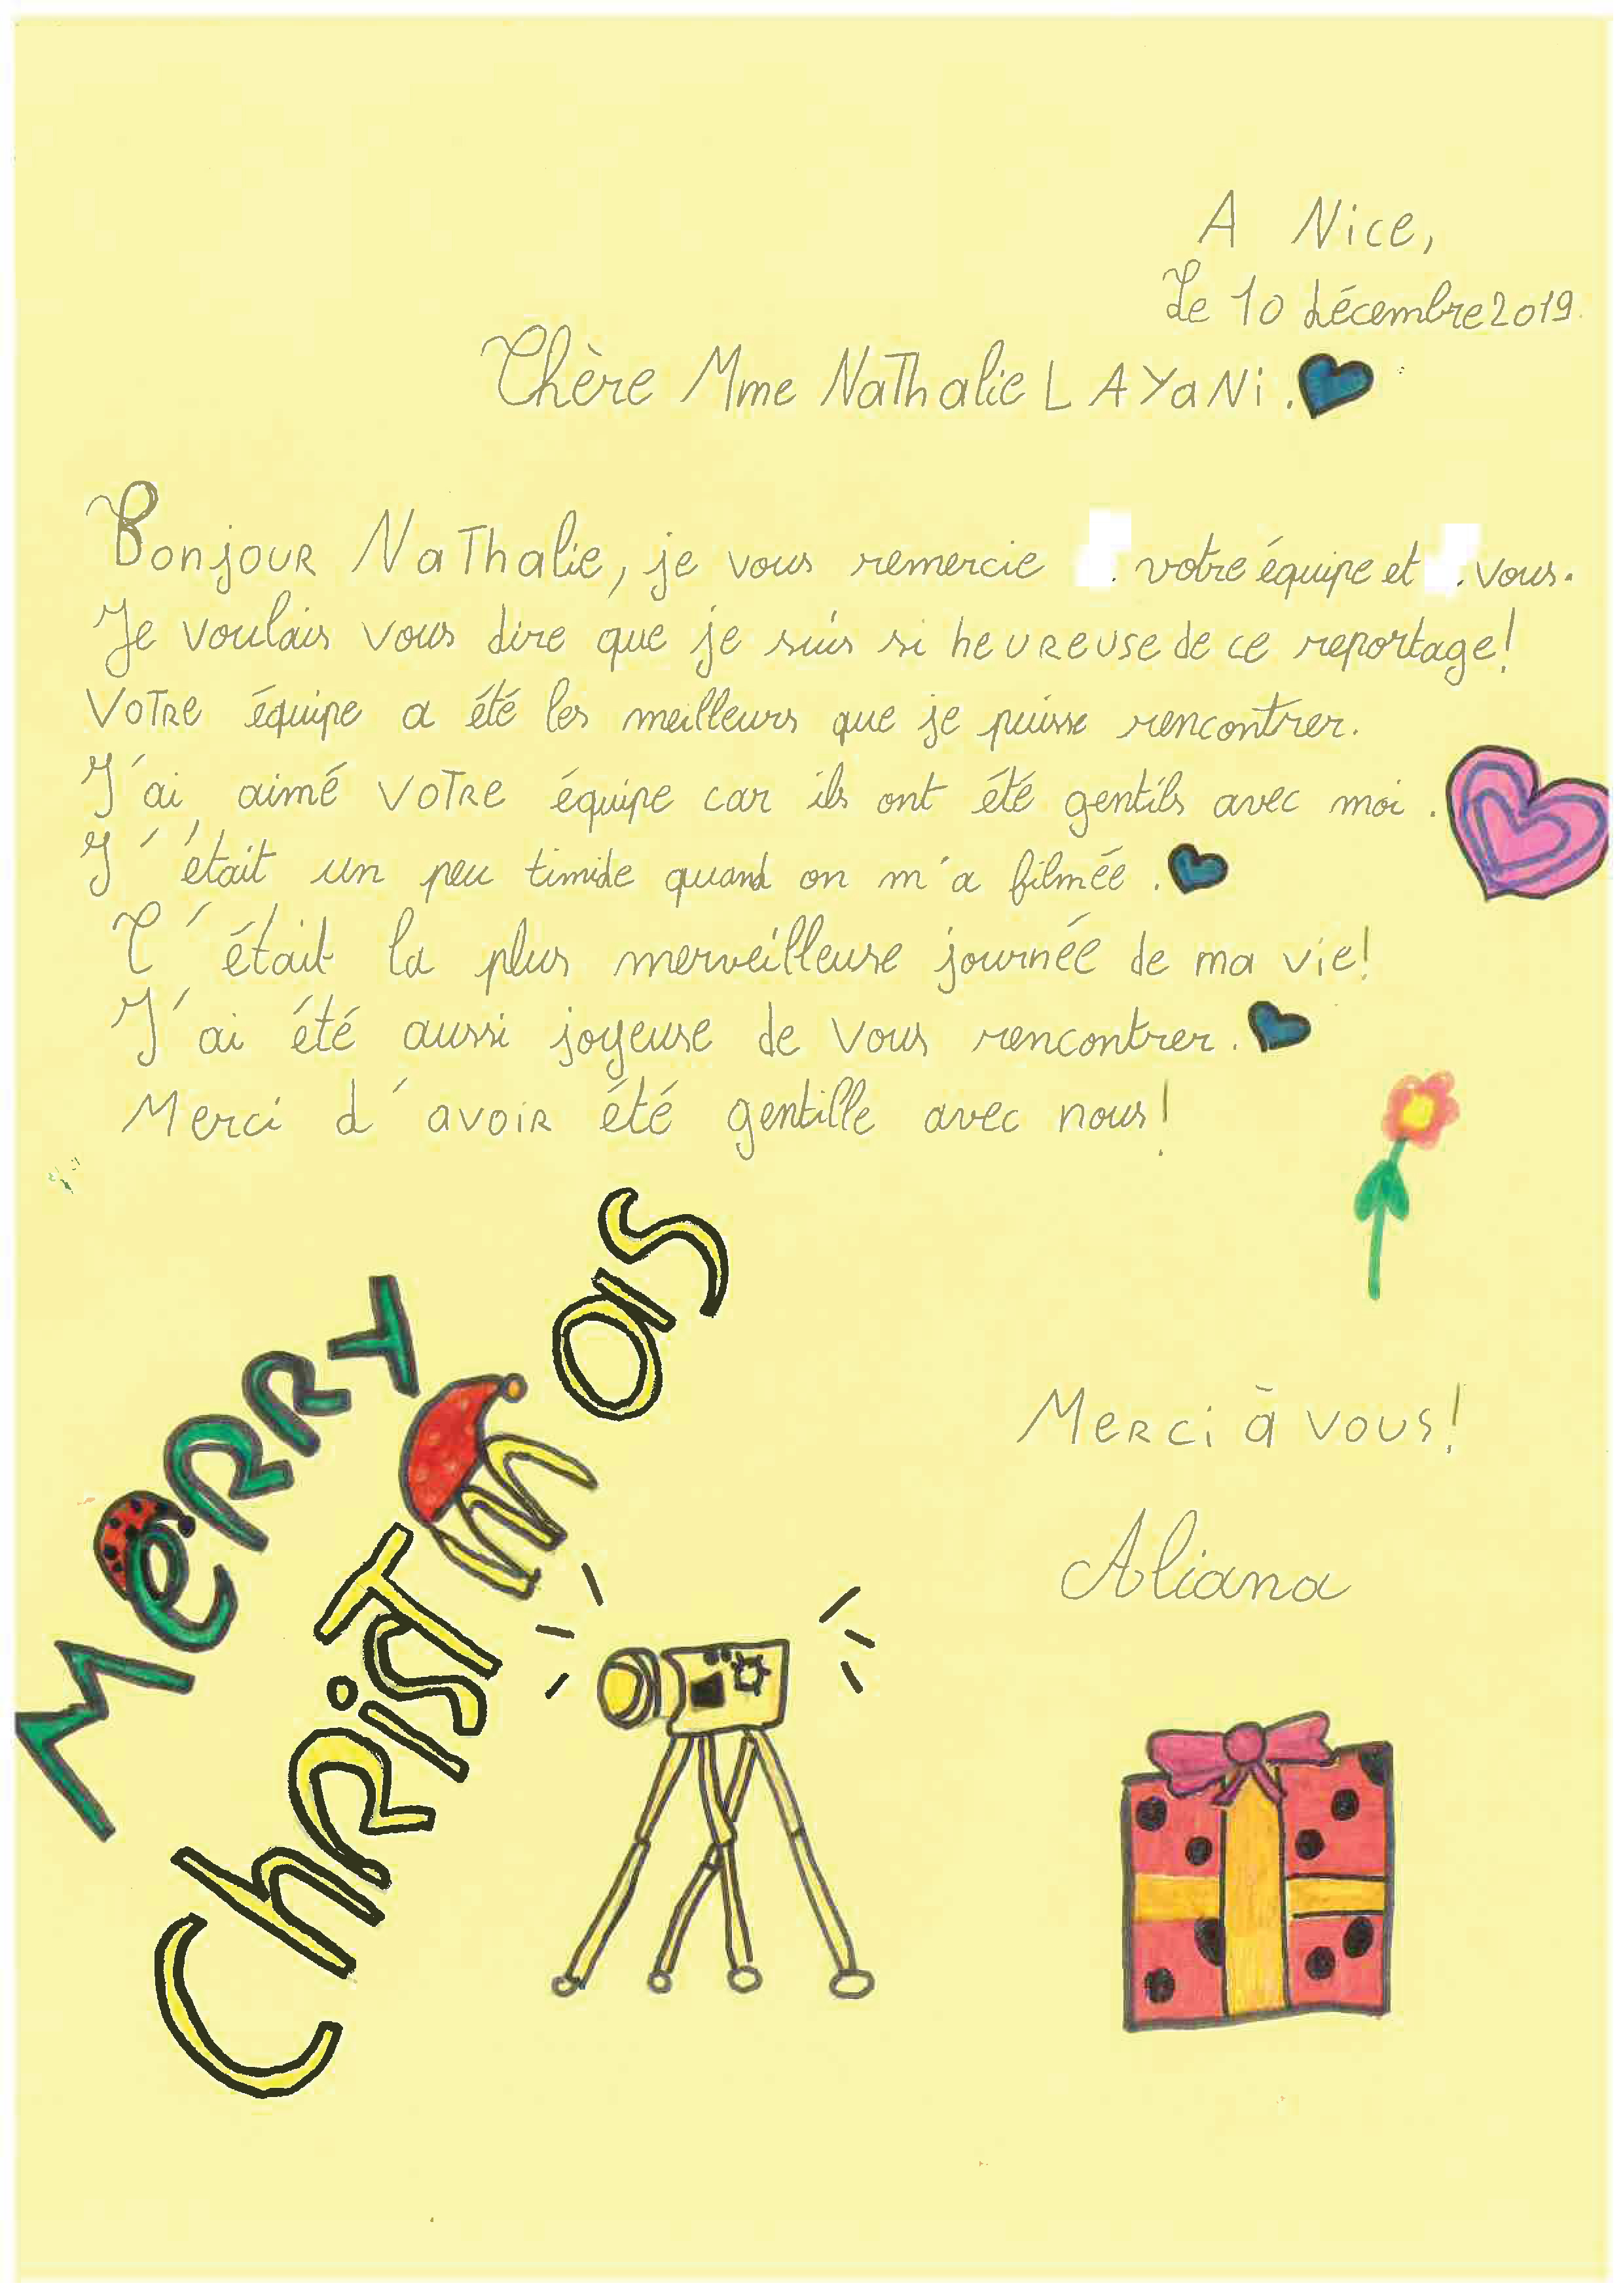 A Nice,
Le 10 décembre 2019.
Chère Mme Nathalie LAYANi.
Bonjour Nathalie, je vous remercie votre équipe et vous.
Je voulais vous dire que je suis si heureuse de ce reportage!
Votre équipe a été les meilleurs que je puisse rencontrer.
J'ai aimé votre équipe car ils ont été gentils avec moi.
J'était un peu timide quand on m'a filmée.
C'était la plus merveilleuse journée de ma vie!
J'ai été aussi joyeuse de vous rencontrer.
Merci d'avoir été gentille avec nous!
Merry
Christmas
Merci à vous!
Aliana